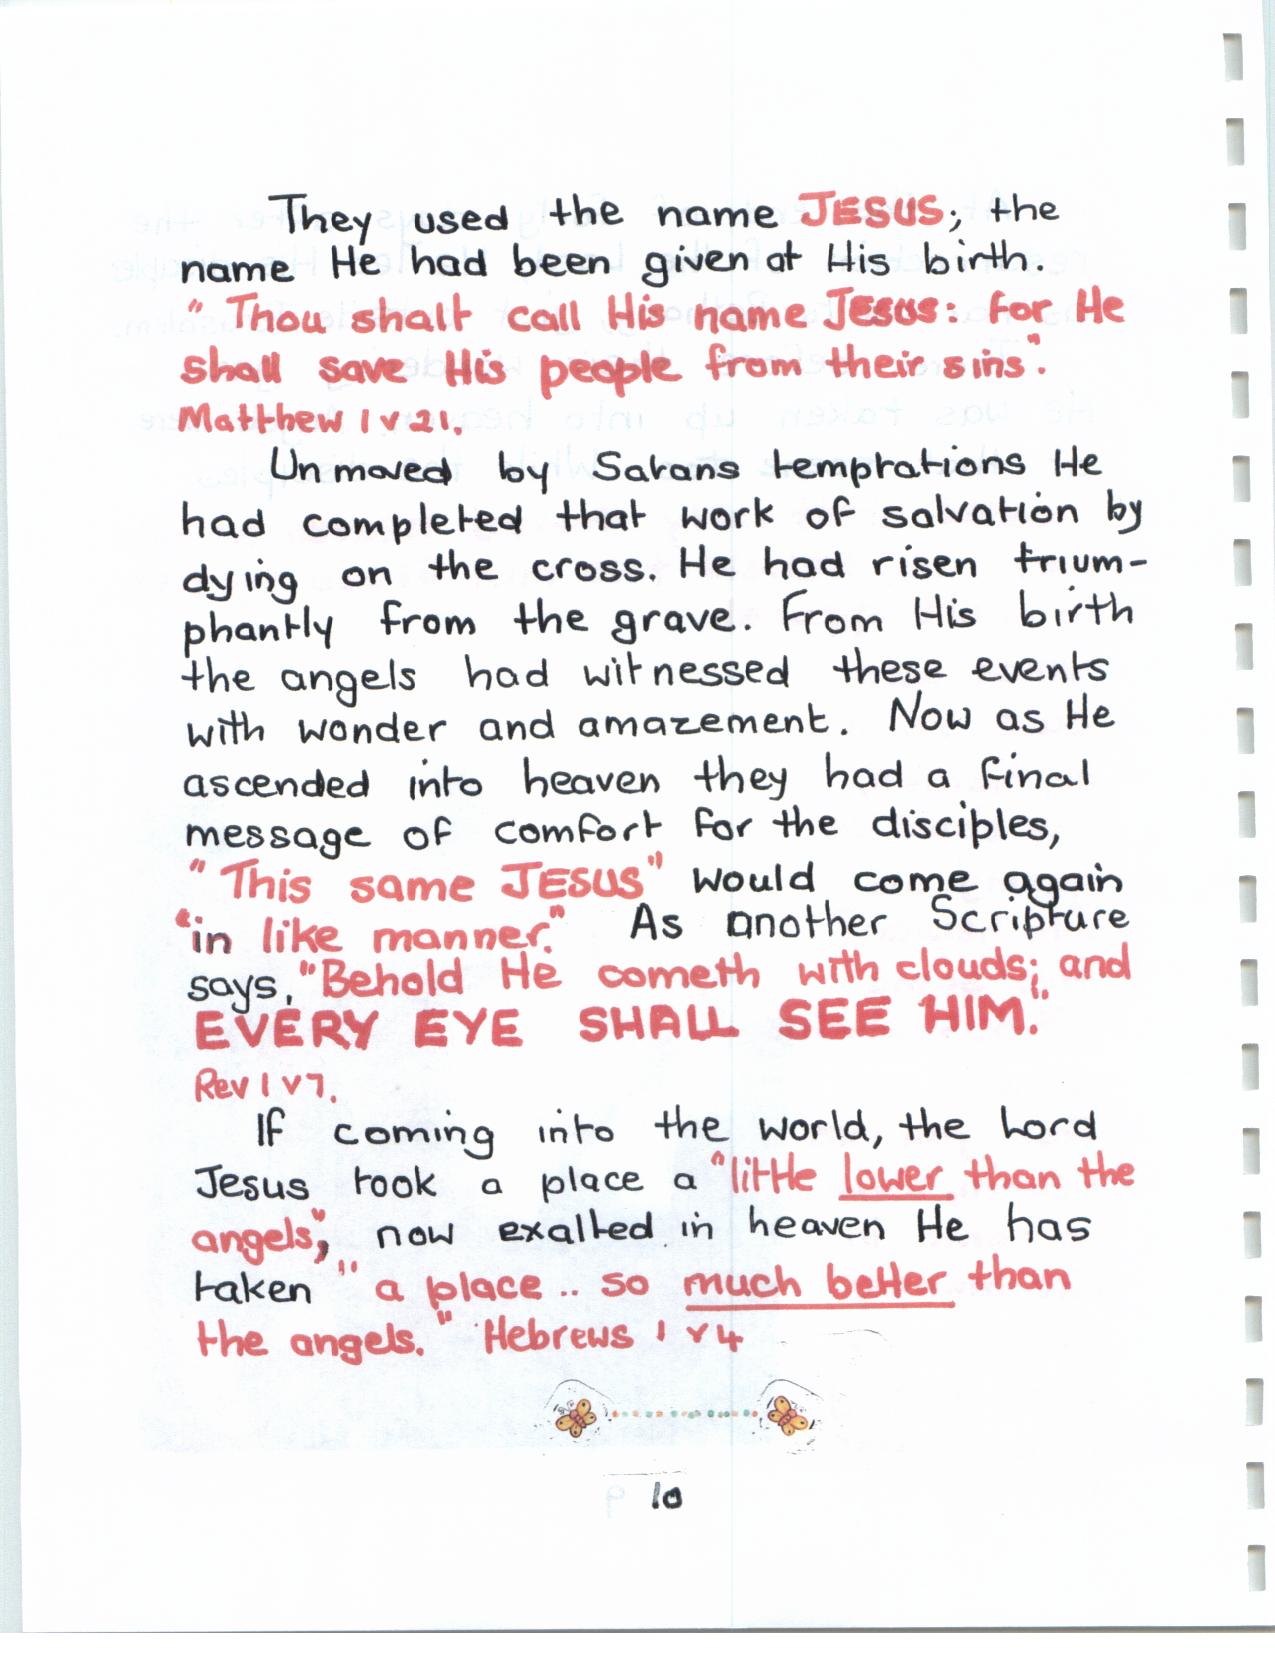 They used the name JESUS; the
name He had been given at His birth.
"Thou shalt call His name Jesus: for He
shall save His people from their sins".
Matthew 1 v 21.
Unmoved by Satans temptations He
had completed that work of salvation by
dying on the cross. He had risen trium-
phantly from the grave. From His birth
the angels had witnessed these events
with wonder and amazement. Now as He
ascended into heaven they had a final
message of comfort for the disciples,
"This same JESUS" would come again
"in like manner." As another Scripture
says, "Behold He cometh with clouds; and
EVERY EYE SHALL SEE HIM."
Rev 1 v 7.
If coming into the world, the Lord
Jesus took a place a "little lower than the
angels", now exalted in heaven He has
taken "a place .. so much better than
the angels." Hebrews 1 v 4
10